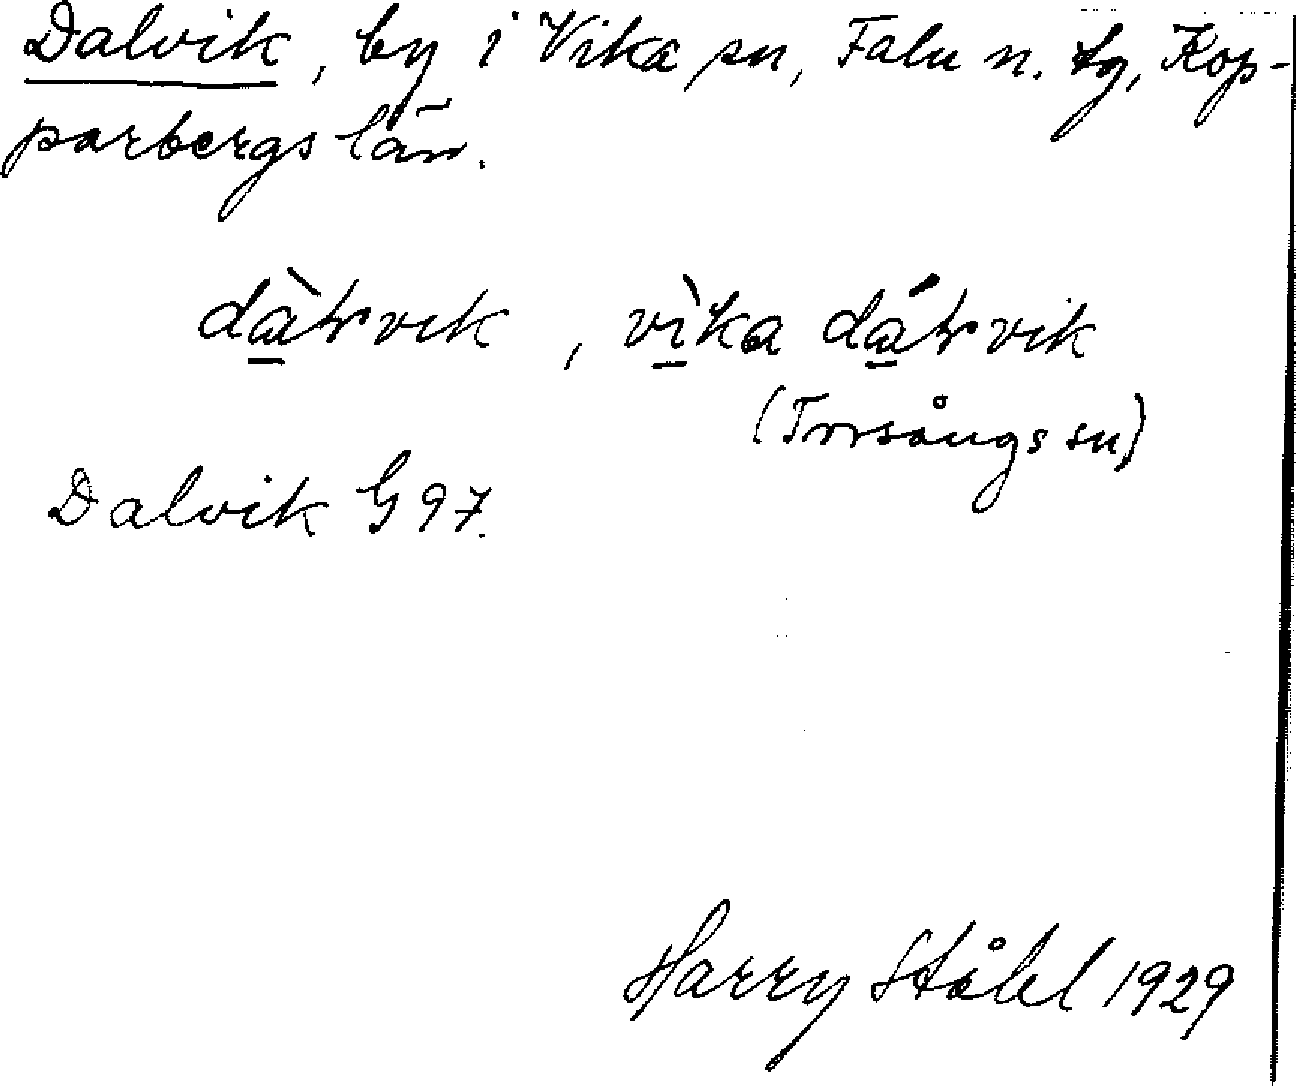 Dalvik, by i Vika sn, Falu n. tg, Kop-
parbergs län.
dàłvik, vìka dáłvik
(Torsångs sn)
Dalvik G 97.
Harry Ståhl 1929